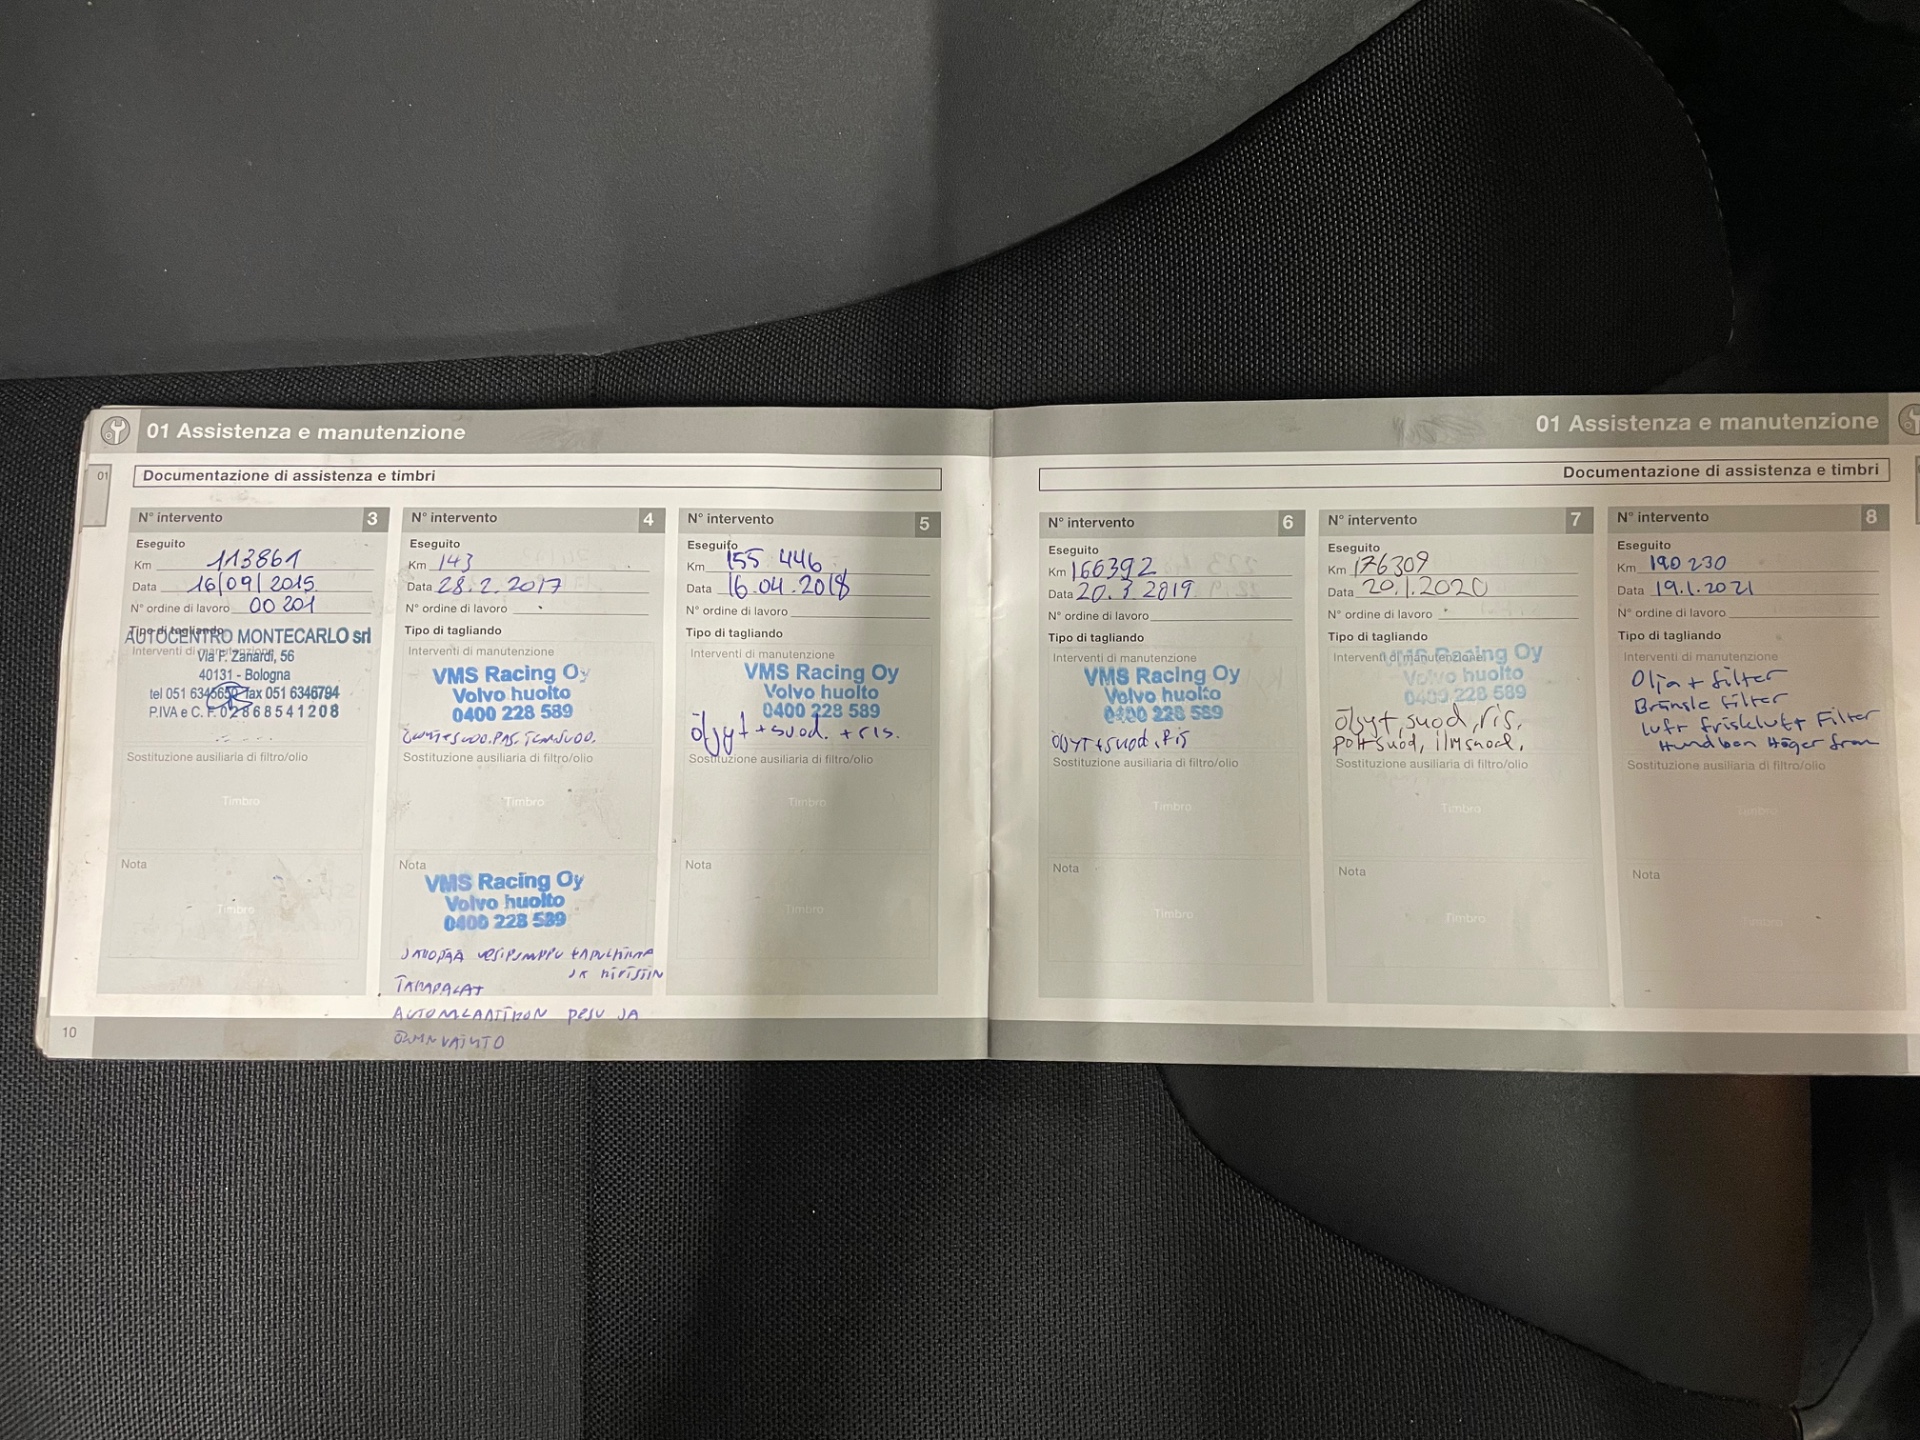 01 Assistenza e manutenzione
01
Documentazione di assistenza e timbri
N° intervento 3
Eseguito
Km 113861
Data 16/09/2015
N° ordine di lavoro 00201
Tipo di tagliando
AUTOCENTRO MONTECARLO srl
Interventi di manutenzione
Via P. Zanardi, 56
40131 - Bologna
tel 051 6346650 fax 051 6346794
P.IVA e C.F. 02868541208
Sostituzione ausiliaria di filtro/olio
Timbro
Nota
Timbro
N° intervento 4
Eseguito
Km 143
Data 28.2.2017
N° ordine di lavoro
Tipo di tagliando
Interventi di manutenzione
VMS Racing Oy
Volvo huolto
0400 228 589
Sostituzione ausiliaria di filtro/olio
Timbro
Nota
VMS Racing Oy
Volvo huolto
0400 228 589
JAKOPÄÄ VESIPUMPPU
JA
PESU JA
N° intervento 5
Eseguito
Km 155 446
Data 16.04.2018
N° ordine di lavoro
Tipo di tagliando
Interventi di manutenzione
VMS Racing Oy
Volvo huolto
0400 228 589
öljyt + suod. + ris.
Sostituzione ausiliaria di filtro/olio
Timbro
Nota
Timbro
10
01 Assistenza e manutenzione
Documentazione di assistenza e timbri
N° intervento 6
Eseguito
Km 166392
Data 20.3.2019
N° ordine di lavoro
Tipo di tagliando
Interventi di manutenzione
VMS Racing Oy
Volvo huolto
0400 228 589
Sostituzione ausiliaria di filtro/olio
Timbro
Nota
Timbro
N° intervento 7
Eseguito
Km 176309
Data 20.1.2020
N° ordine di lavoro
Tipo di tagliando
Interventi di manutenzione
VMS Racing Oy
Volvo huolto
0400 228 589
öljyt, suod, ris.
polt suod, ilmsuod.
Sostituzione ausiliaria di filtro/olio
Timbro
Nota
Timbro
N° intervento 8
Eseguito
Km 190 230
Data 19.1.2021
N° ordine di lavoro
Tipo di tagliando
Interventi di manutenzione
Olja + filter
Bränsle filter
luft friskluft Filter
Hundben Höger fram
Sostituzione ausiliaria di filtro/olio
Timbro
Nota
Timbro